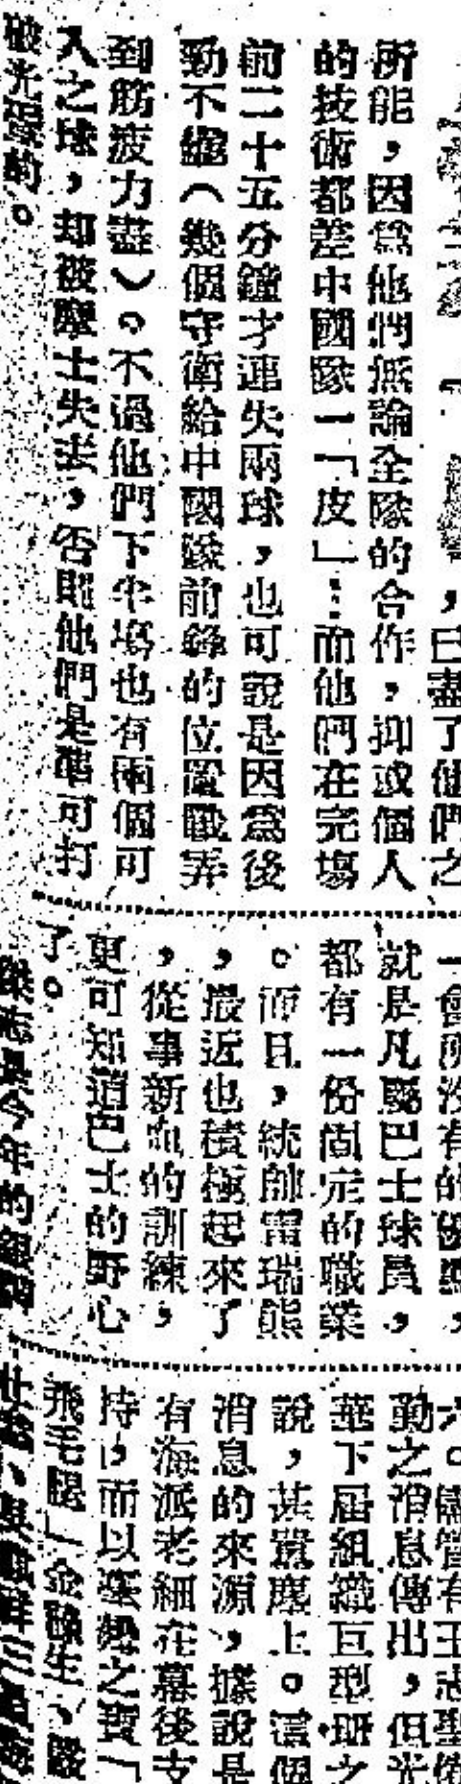 ，已盡了他們之
所能，因爲他們無論全隊的合作，抑或個人
的技術都差中國隊一「皮」…而他們在完塲
前二十五分鐘才連失兩球，也可說是因爲後
勁不繼（幾個守衛給中國隊前鋒的位置戰弄
到筋疲力盡）。不過他們下半塲也有兩個可
入之球，却被摩士失去，否則他們是確可打
破光蛋的。
一會所沒有的優點，
就是凡屬巴士球員，
都有一份固定的職業
。而且，統帥雷瑞熊
，最近也積極起來了
，從事新血的訓練，
更可知道巴士的野心
了。
傑志是今年的銀牌
六。儘管有王志聖
勤之消息傳出，但光
華下屆組織巨型班之
說，甚囂塵上。這個
消息的來源，據說是
有海派老細在幕後支
持，而以
飛毛腿」金祿生、嚴